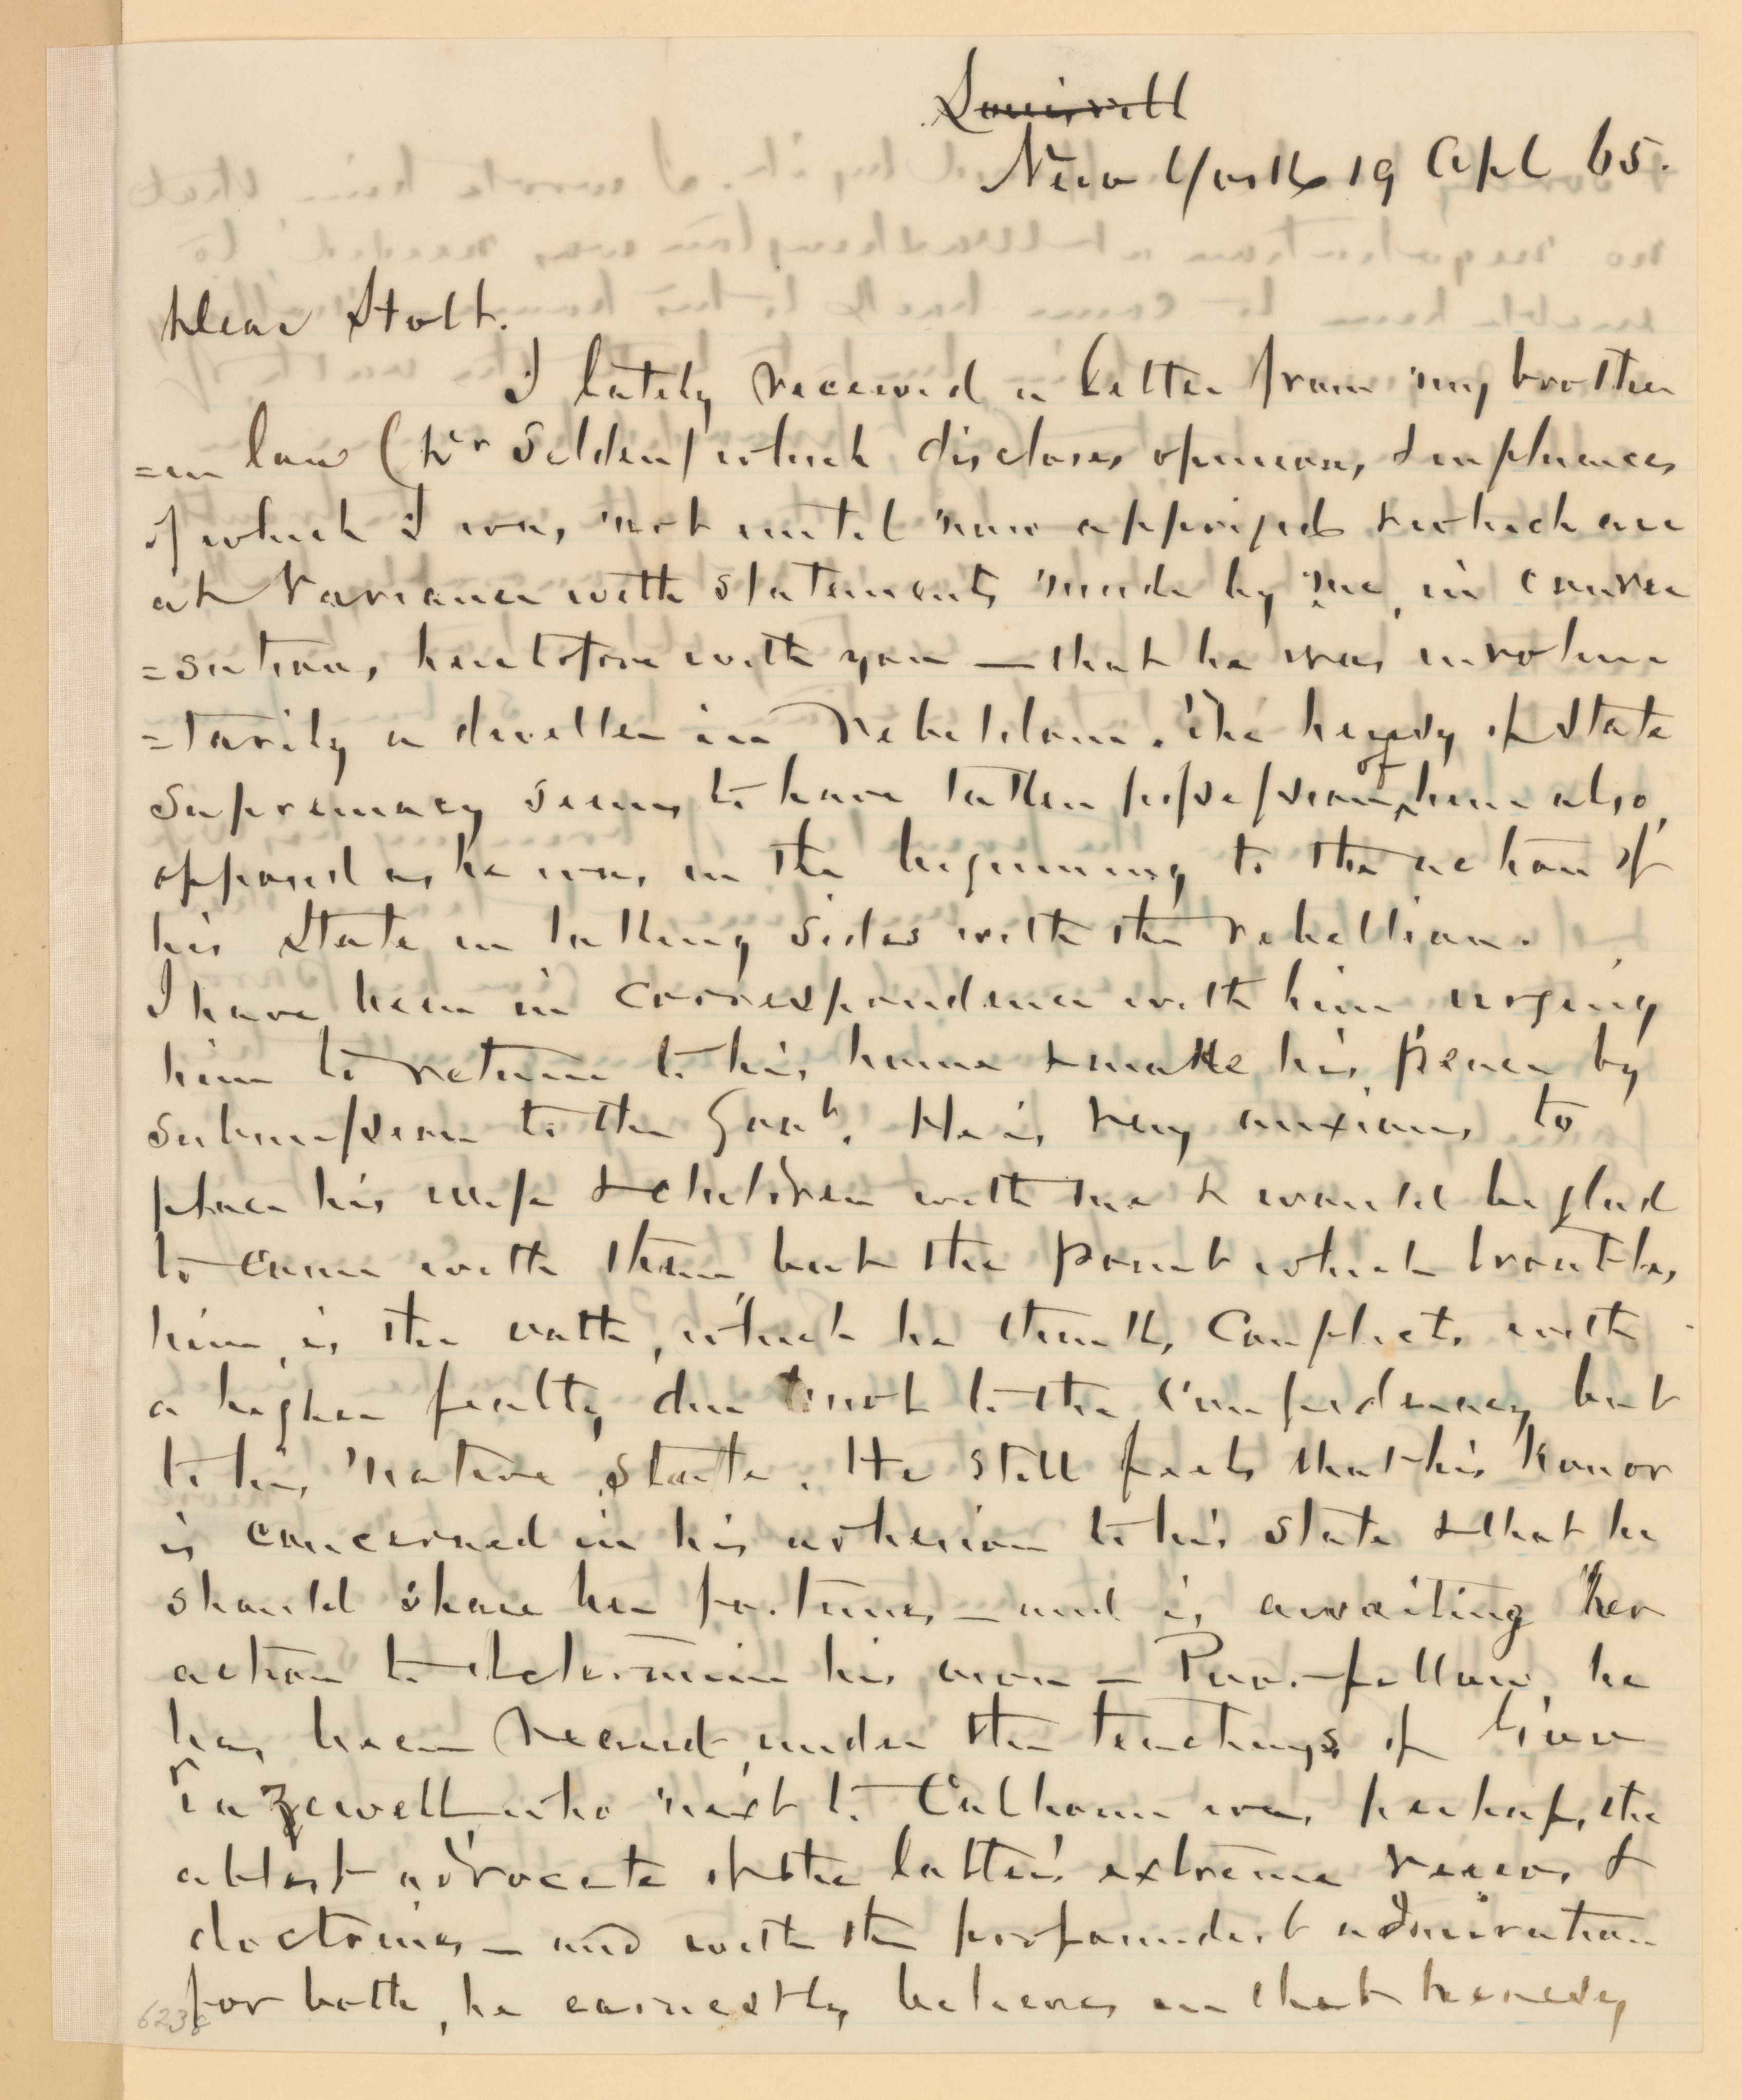 Louisvill
New York 19 Apl 65.
Dear Holt.
I lately received a letter from my brother
=in law (Dr Selden) which discloses opinions, & influences
of which I was, not until now apprized & which are
at variance with statements made by me, in conver
=sations, heretofore with you — that he was involun
=tarily a dweller in Rebeldom. The heresy of State
supremacy seems to have taken possession of him also,
opposed as he was in the beginning to the action of
his State in taking sides with the rebellion.
I have been in correspondence with him urging
him to return to his home & make his peace by
submission to the Govt. He is very anxious to
place his wife & children with me & would be glad
to come with them, but the point which troubles
him, is the oath, which he thinks conflicts with
a higher fealty due not to the Confederacy but
to his native state. He still feels that his honor
is concerned in his adhesion to his state & that he
should share her fortunes — and is awaiting her
action to determine his own — Poor fellow, he
has been reared under the teachings of Gov
Tazewell who next to Calhoun was, perhaps, the
ablest advocate of the latter's extreme views &
doctrines — and with the profoundest admiration
for both, he earnestly believes in that heresy
6238